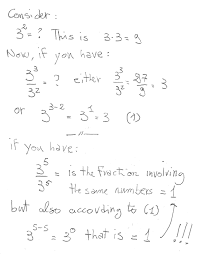 Consider:
3² = ? This is 3·3 = 9
Now, if you have:
3³/3² = ? either 3³/3² = 27/9 = 3
or 3³⁻² = 3¹ = 3 (1)
—"—
if you have:
3⁵/3⁵ = is the fraction involving
the same numbers = 1
but also according to (1)
3⁵⁻⁵ = 3⁰ that is = 1 !!!